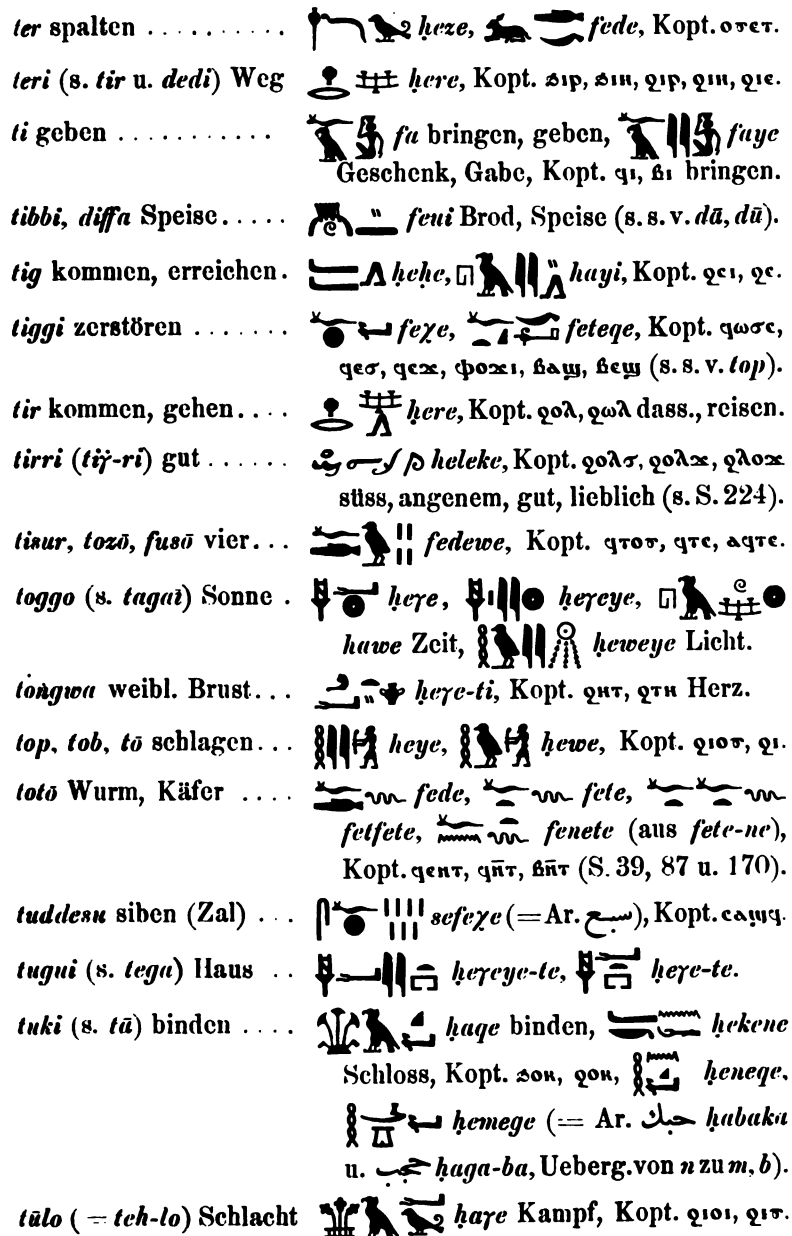 ter spalten . . . . . . . . . . ḥeχe, fede, Kopt. ⲟⲧⲉⲧ.
teri (s. tir u. dedi) Weg ḥere, Kopt. ϩⲓⲣ, ϩⲓⲏ, ϩⲓⲉ.
ti geben . . . . . . . . . . . fa bringen, geben, faye
Geschenk, Gabe, Kopt. ϥⲓ, ⲃⲓ bringen.
tibbi, diffa Speise . . . . . feui Brod, Speise (s. s. v. dā, dū).
tig kommen, erreichen . ḥehe, hayi, Kopt. ϩⲉⲓ, ϩⲉ.
tiggi zerstören . . . . . . . feχe, feteqe, Kopt. ϥⲱϭⲉ,
ϥⲉϭ, ϥⲉϫ, ⲫⲟϫⲓ, ⲃⲁϣ, ⲃⲉϣ (s. s. v. top).
tir kommen, gehen . . . . ḥere, Kopt. ϩⲟⲗ, ϩⲱⲗ dass., reisen.
tirri (tiγ̇-ri) gut . . . . . . ḥeleke, Kopt. ϩⲟⲗϭ, ϩⲟⲗϫ, ϩⲗⲟϫ
süss, angenem, gut, lieblich (s. S. 224).
tozō, fusō vier . . . fedewe, Kopt. ϥⲧⲟⲧ, ϥⲧⲉ, ⲁϥⲧⲉ.
toggo (s. tagai) Sonne . ḥeγe, ḥeγeye,
hawe Zeit, ḥeweye Licht.
weibl. Brust . . . ḥeγe-ti, Kopt. ϩⲏⲧ, ϩⲧⲏ Herz.
top, tob, tō schlagen . . . heye, ḥewe, Kopt. ϩⲓⲟⲧ, ϩⲓ.
totō Wurm, Käfer . . . . fede, fete,
fetfete, fenete (aus fete-ne),
Kopt. ϥⲉⲛⲧ, ϥⲛ̄ⲧ, ⲃⲛ̄ⲧ (S. 39, 87 u. 170).
siben (Zal) . . . sefeχe (= Ar. سبع), Kopt. ⲥⲁϣϥ.
tugui (s. tega) Haus . . ḥeγeye-te, ḥeγe-te.
tuki (s. tā) binden . . . . ḥaqe binden, ḥekene
Schloss, Kopt. ϩⲟⲕ, ḥeneqe,
ḥemege (= Ar. حبك ḥabaka
u. ḥaga-ba, Ueberg. von n zu m, b).
tūlo (= teh-lo) Schlacht ḥaγe Kampf, Kopt. ϩⲓⲟⲓ, ϩⲓⲧ.